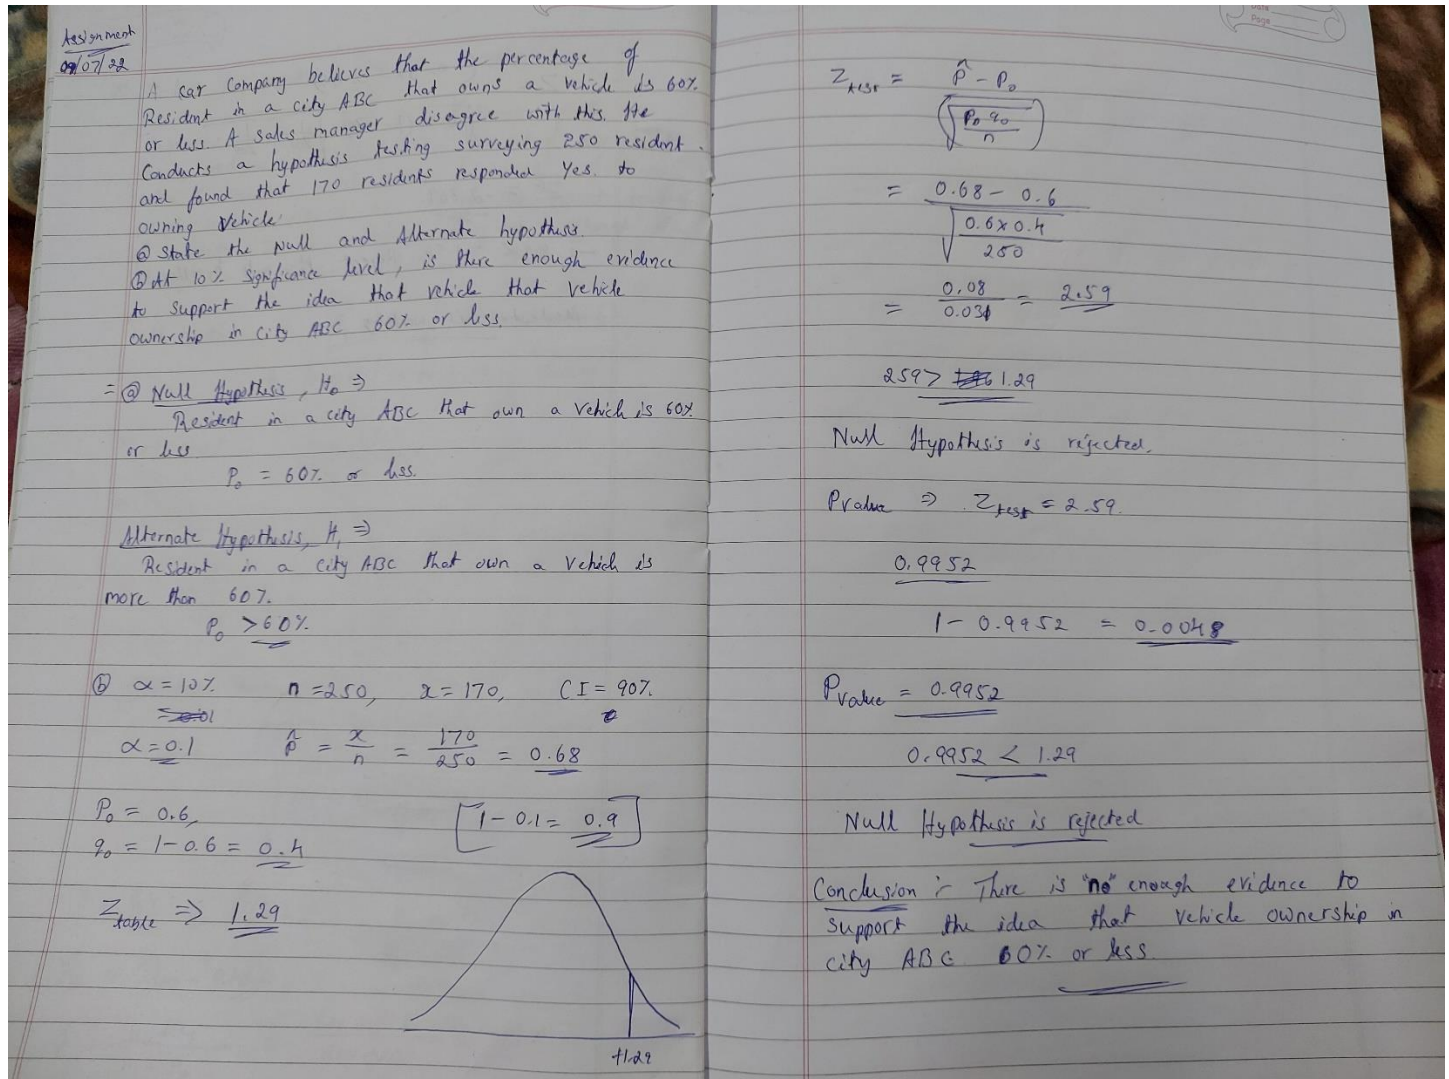 Assignment
09/07/22
A car Company believes that the percentage of
Resident in a city ABC that owns a vehicle is 60%
or less. A sales manager disagree with this. He
Conducts a hypothesis testing surveying 250 resident.
and found that 170 residents responded Yes. to
owning Vehicle.
ⓐ State the Null and Alternate hypothesis
ⓑ At 10% Significance level, is there enough evidence
to support the idea that vehicle that vehicle
ownership in City ABC 60% or less.
= ⓐ Null Hypothesis, H₀ ⇒
Resident in a city ABC that own a vehicle is 60%
or less
P₀ = 60% or less.
Alternate Hypothesis, H₁ ⇒
Resident in a City ABC that own a vehicle is
more than 60%.
P₀ > 60%
ⓑ α = 10% n = 250, x = 170, CI = 90%
α = 0.1 p̂ = x/n = 170/250 = 0.68
P₀ = 0.6, [1 - 0.1 = 0.9]
q₀ = 1 - 0.6 = 0.4
Z table ⇒ 1.29
+1.29
Date
Page
Z test = p̂ - P₀
√(P₀ q₀ / n)
= 0.68 - 0.6
√(0.6 x 0.4 / 250)
= 0.08 / 0.031 = 2.59
259 > 1.29
Null Hypothesis is rejected.
P value ⇒ Z test = 2.59.
0.9952
1 - 0.9952 = 0.0048
P value = 0.9952
0.9952 < 1.29
Null Hypothesis is rejected
Conclusion :- There is "no" enough evidence to
support the idea that vehicle ownership in
city ABC 60% or less.